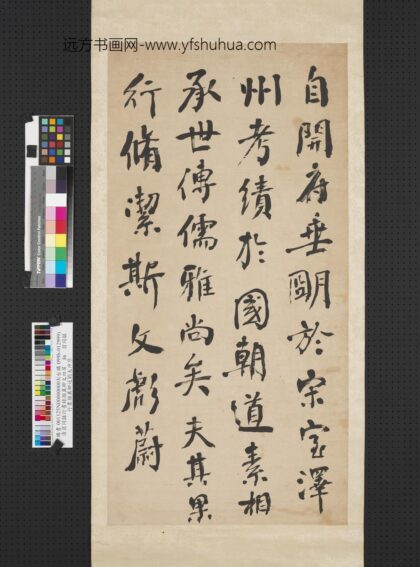 远方书画网-www.yfshuhua.com
自開府垂朙於宋室澤
州考績於國朝道素相
承世傳儒雅尚矣夫其果
行脩潔斯文彪蔚